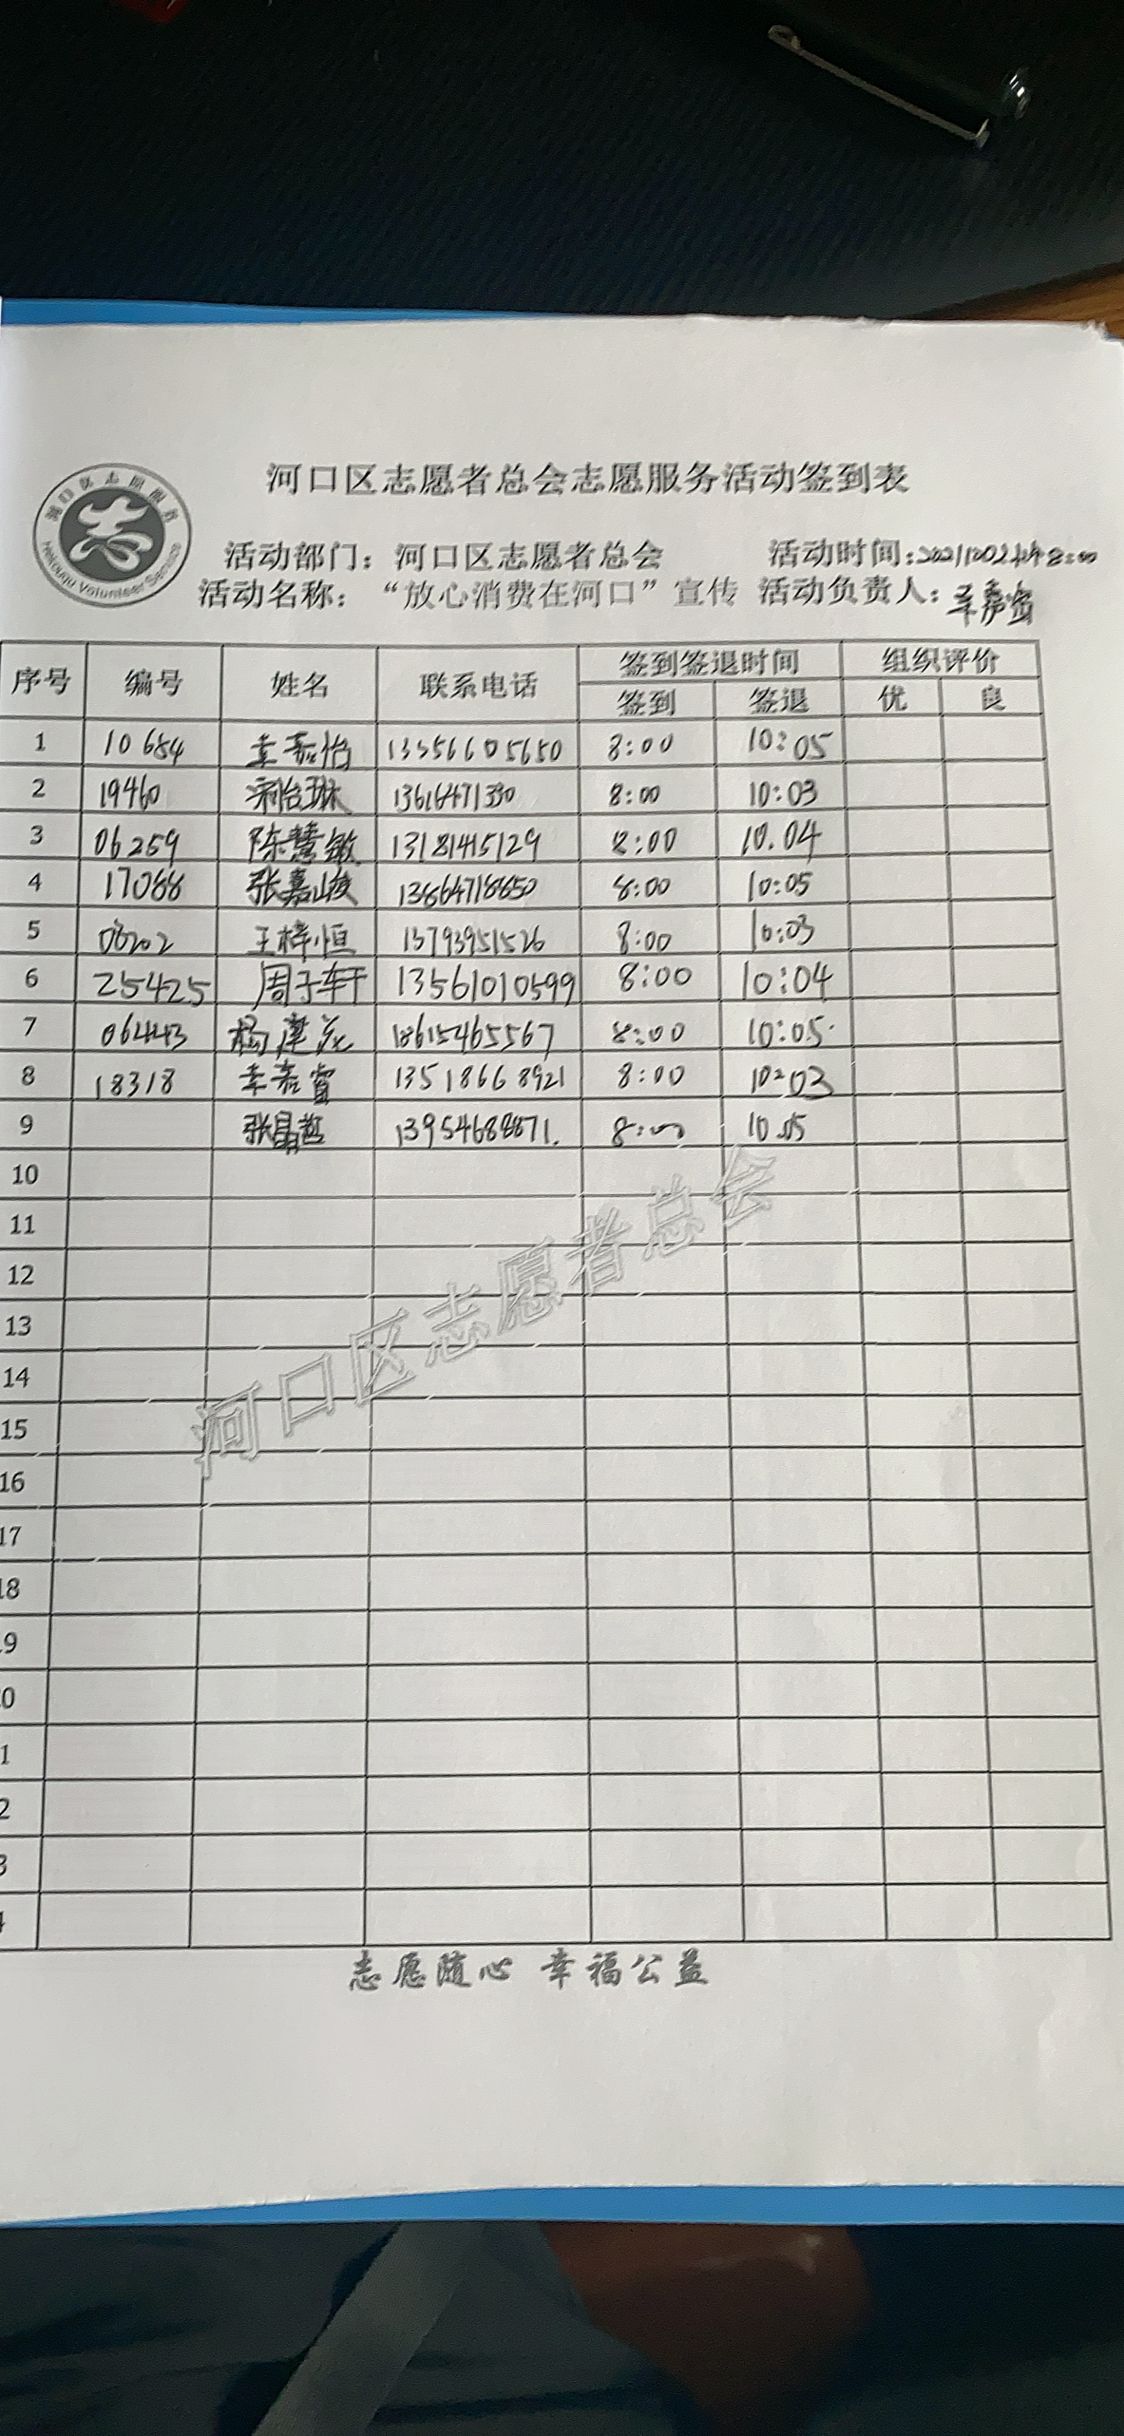 河口区志愿者总会志愿服务活动签到表
河口区志愿服务
Hekouqu Volunteer Service
活动部门：河口区志愿者总会 活动时间：
活动名称：“放心消费在河口”宣传 活动负责人：
序号 编号 姓名 联系电话 签到签退时间 组织评价
签到 签退 优 良
1 10684 13356605650 8:00 10:05
2 19460 13616471330 8:00 10:03
3 06259 陈慧敏 13181415129 8:00 10.04
4 17088 张嘉峻 13864718850 8:00 10:05
5 王梓恒 13793951526 8:00 10:03
6 25425 周子轩 13561010599 8:00 10:04
7 06443 杨 18615465567 8:00 10:05
8 18318 13518668921 8:00 10:03
9 张昌哲 13954688871. 8:00 10.05
10
11
12
13
14
15
16
17
18
9
0
1
2
3
4
河口区志愿者总会
志愿随心 幸福公益